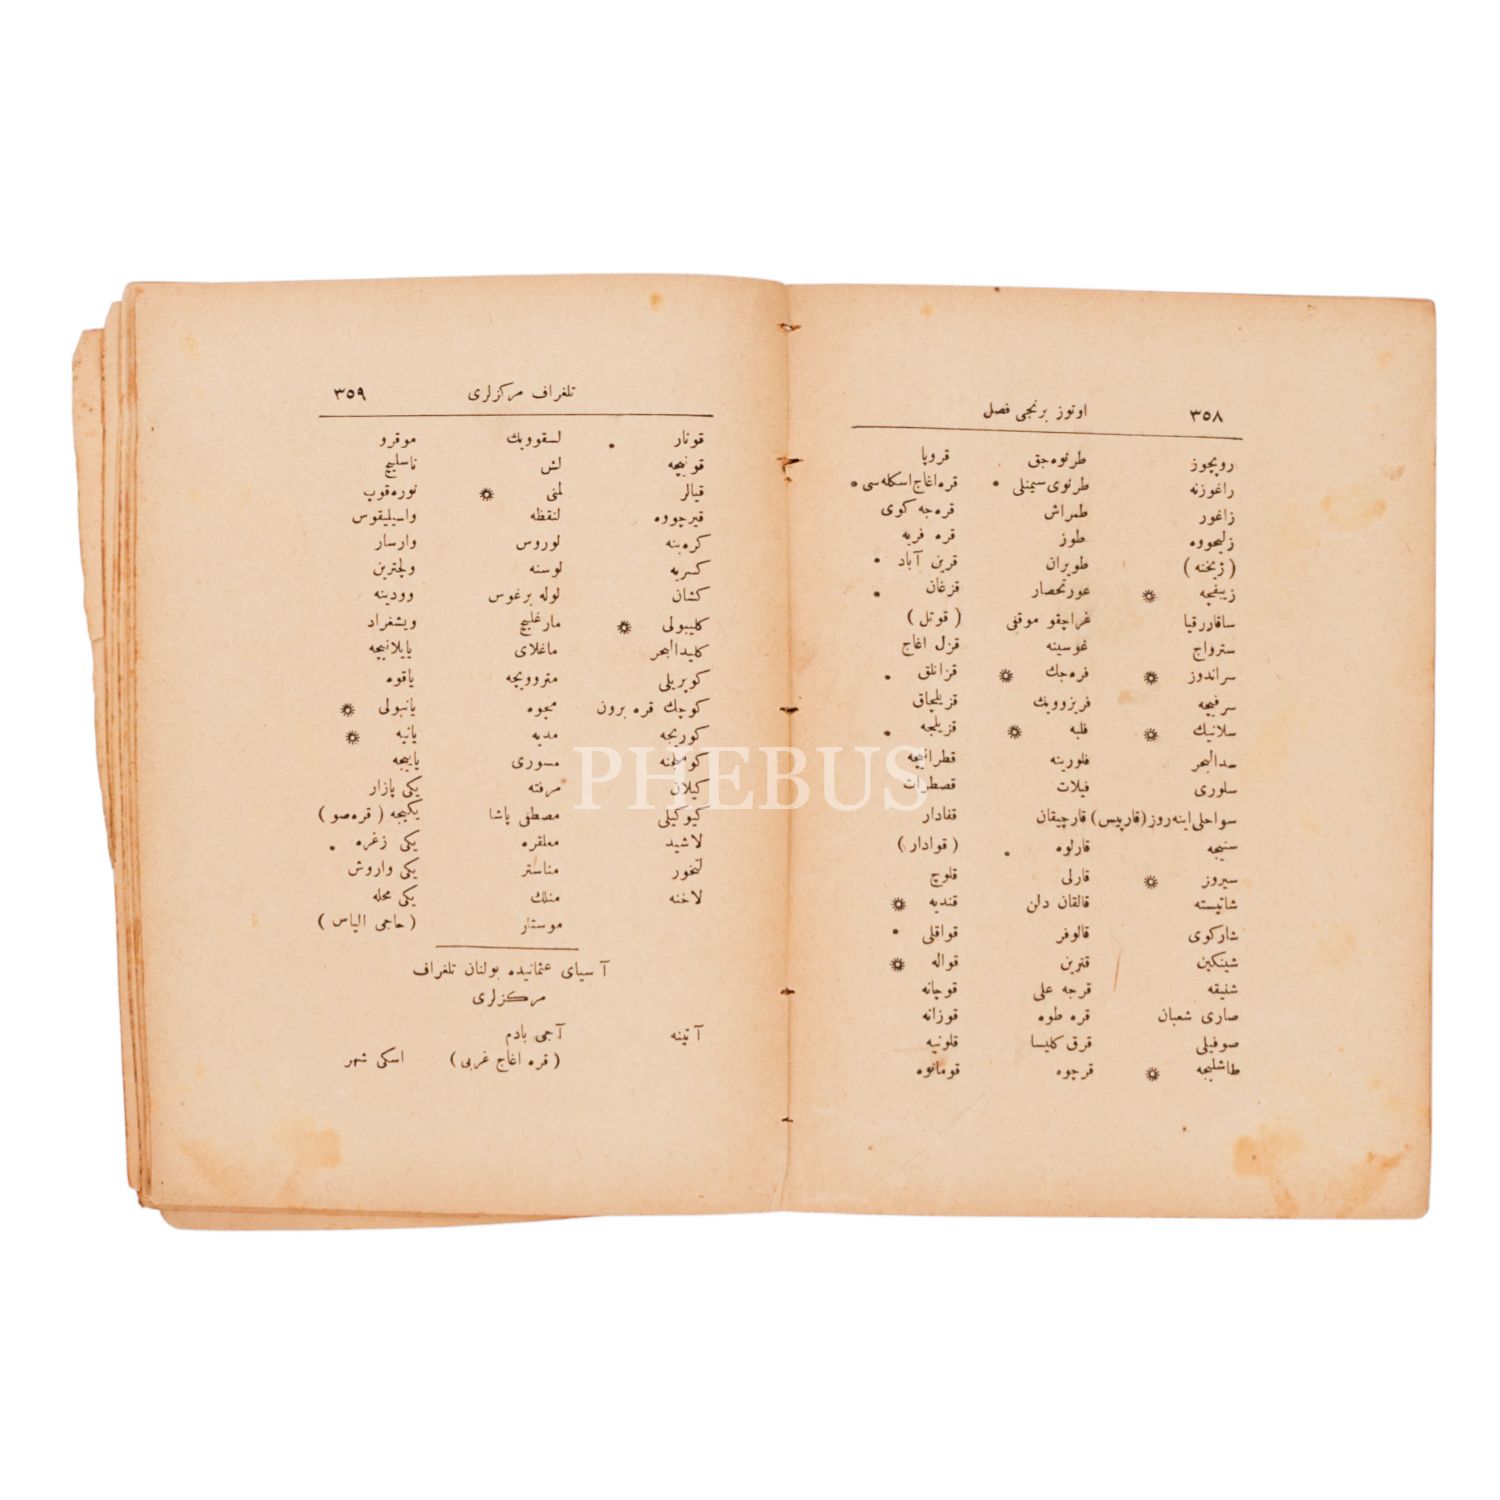 ٣٥٨ اوتوز برنجی فصل
روپجوز طرنوه‌جق قروپا
راغوزنه طرنوی سیمنلی • قره‌اغاج اسکله‌سی •
زاغور طمراش قره‌جه کوی
زلیحووه طوز قره فریه
(زیخنه) طویران قرین آباد •
زیبفچه عورتحصار قزغان •
ساقارقیا غراچقو موقنی (قوتل)
سترواج غوسینه قزل اغاج
سراندوز فره‌جك قزانلق •
سرفیجه فریزوویك قزیلجاق
سلانیك فلبه قزیلجه •
سدالبحر فلورینه قطرانیجه
سلوری فیلات قصطرات
سواحلی اینه‌روز (قارپیس) قارچیقان قفادار
سنیجه قارلوه • (قوادار)
سیروز قارلی قلوچ
شاتیسته قالقان دلن قندیه
شارکوی قالوفر قواقلی •
شینکین قترین قواله
شنیقه قرجه علی قوچانه
صاری شعبان قره طوه قوزانه
صوفیلی قرق کلیسا قلونیه
طاشلیجه قرچوه قومانوه
تلغراف مرکزلری ٣٥٩
قونار • لسقوویك موقرو
قونیچه لش ناسلیچ
قیالر لمنی نوره‌قوپ
قیرچووه لنقظه واسیلیقوس
کره‌بنه لوروس وارسار
کسریه لوسنه ولچترین
کشان لوله برغوس وودینه
کلیبولی مارغلیچ ویشغراد
کلیدالبحر ماغلای یایلانیجه
کوپریلی متروویچه یاقوه
کوچك قره برون مجوه یانبولی
کوریجه مدیه یانیه
کوملجنه مسوری یاییجه
کیلان مرفته یکی پازار
کیوکیلی مصطفی پاشا یکیجه (قره‌صو)
لاشید معلقره یکی زغره •
لتخور مناستر یکی واروش
لاخنه منلك یکی محله
موستار (حاجی الیاس)
آسیای عثمانیده بولنان تلغراف
مرکزلری
آتینه آجی بادم
(قره اغاج غربی) اسکی شهر
PHEBUS